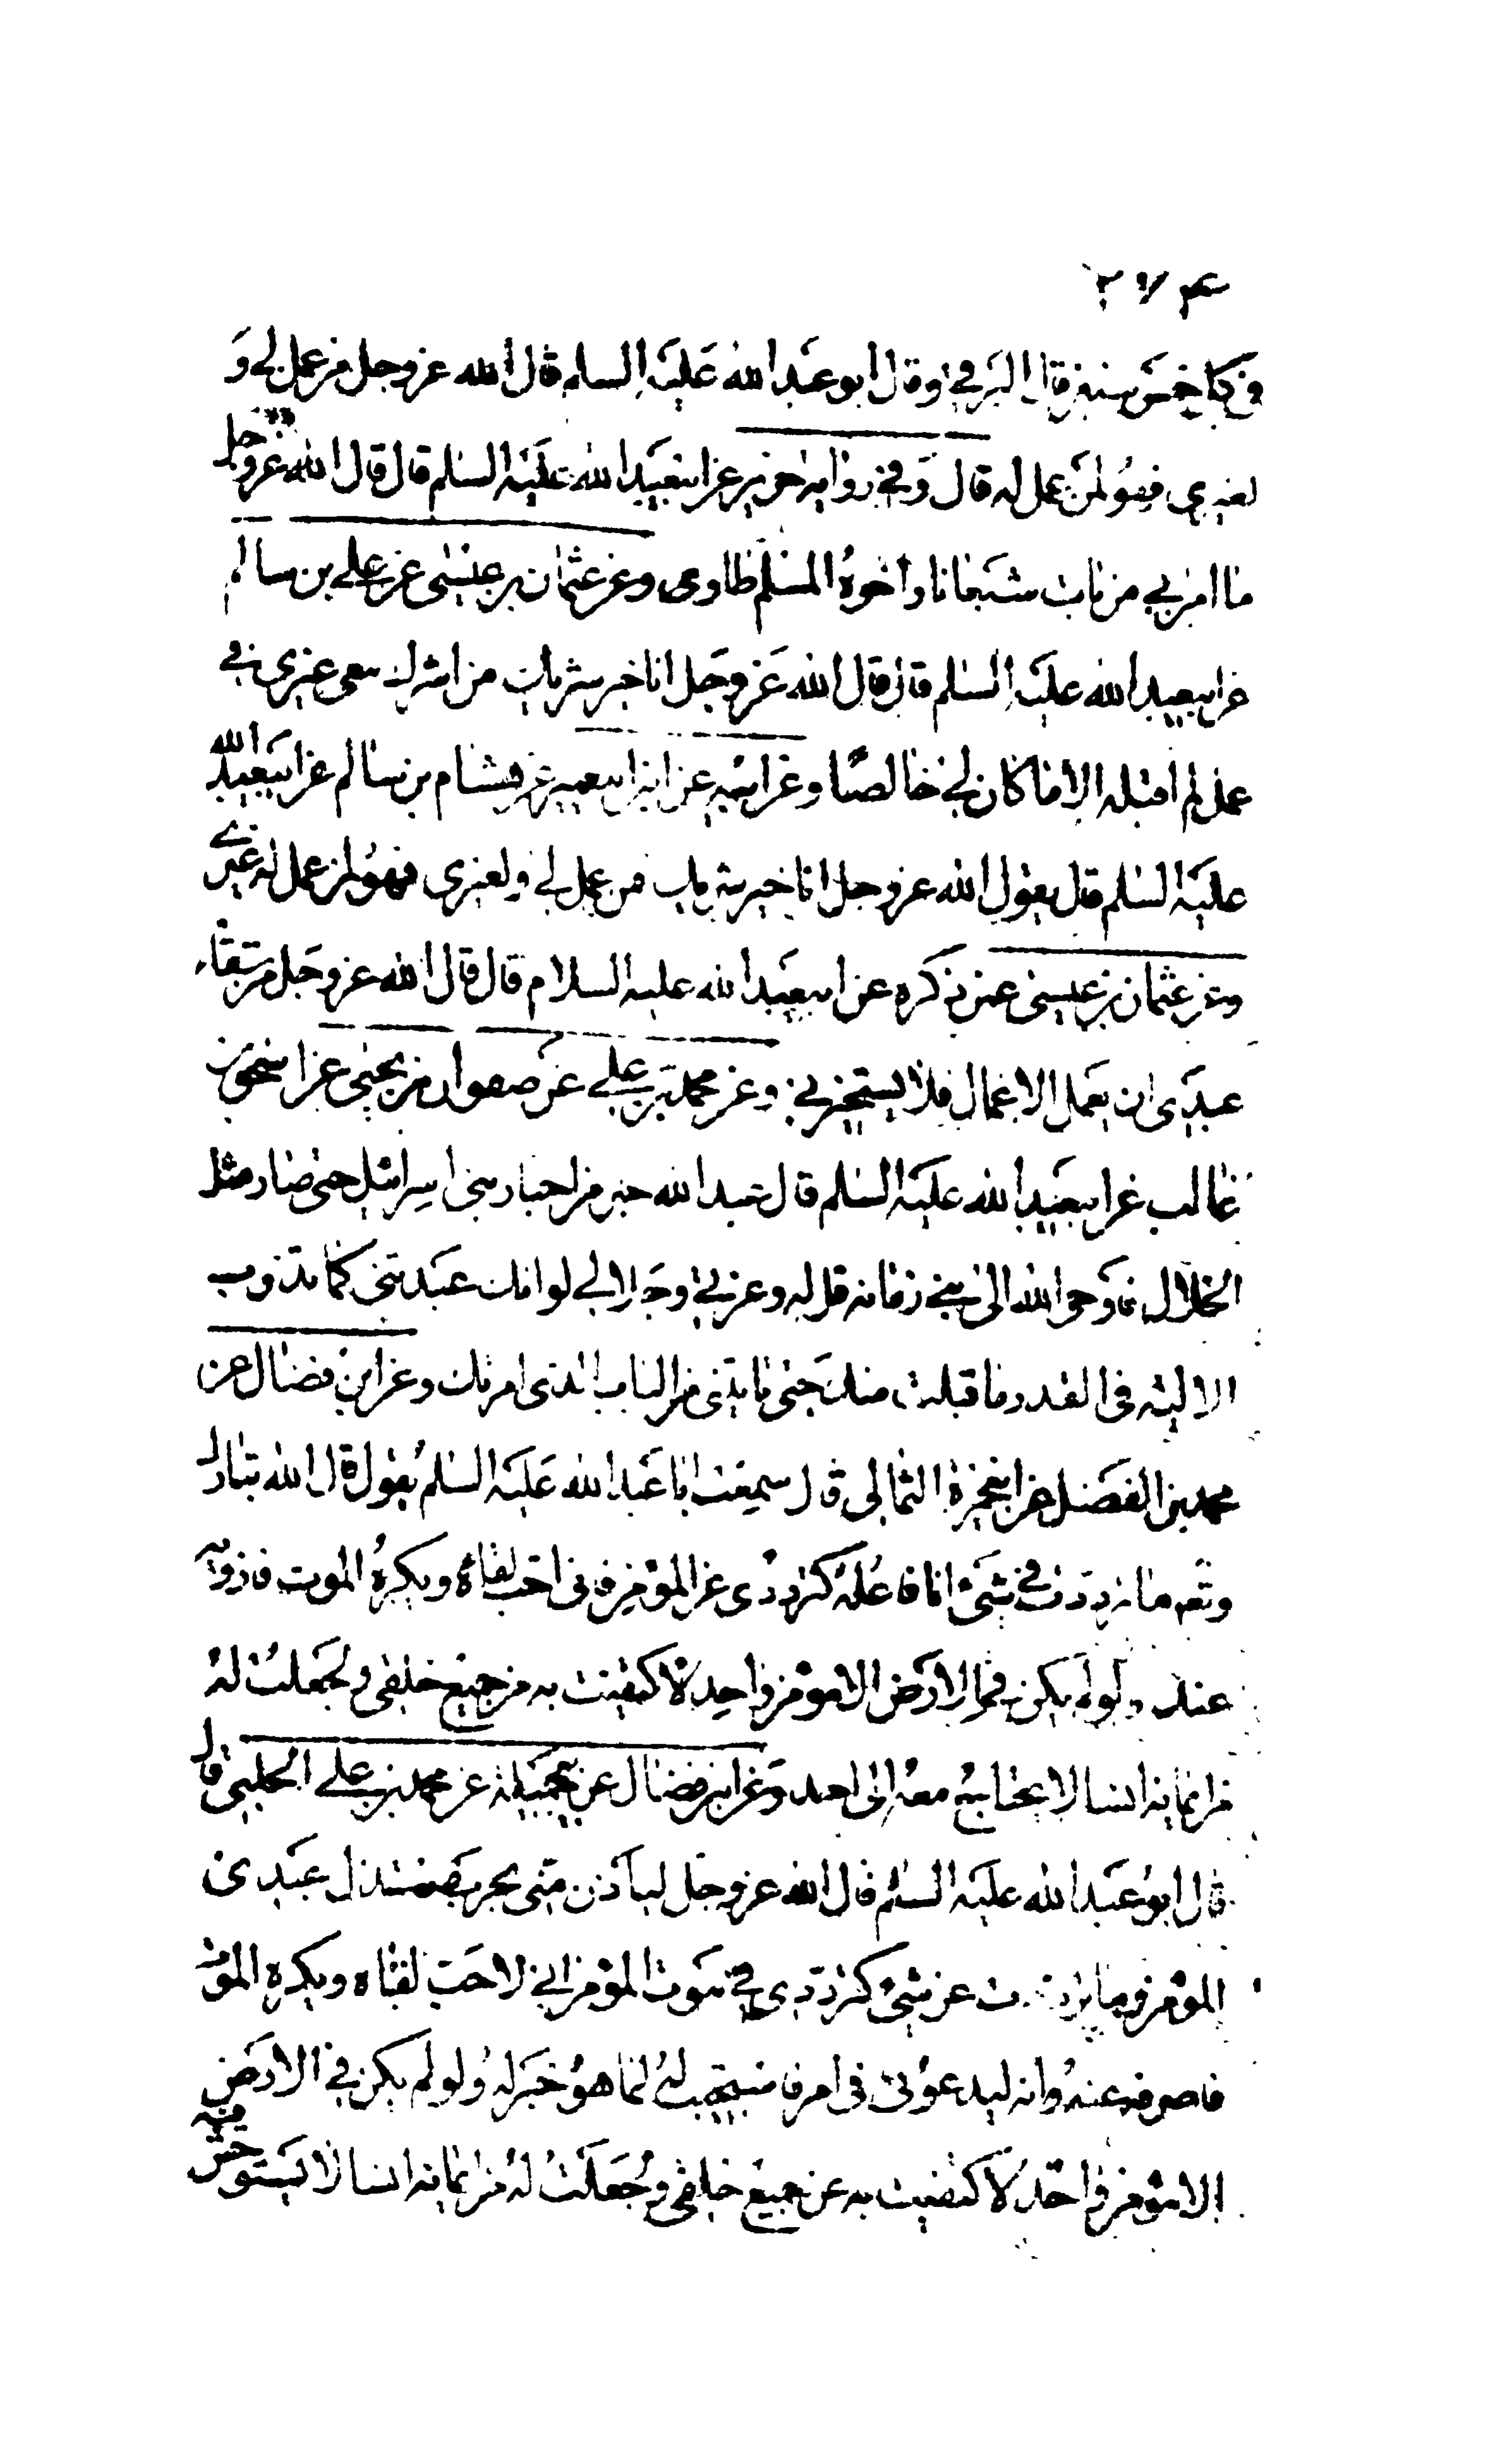 ٢٧٤
في كل خمس سنين قال البرقي وقال ابو عبدالله عليه السلم قال الله عز وجل من عمل لي و
لغيري فهو لمن عمل له قال وفي رواية عن ابيعبدالله عليه السلم قال قال الله عز وجل
ما امن بي من بات شبعانا واخوه المسلم طاوى وعن عثمان بن عيسى عن علي بن سالم
عن ابيعبدالله عليه السلم قال قال الله عز وجل انا خير شريك من اشرك معى غيرى في
عمل لم اقبله الا ما كان لي خالصا وعن ابيه عن ابن ابيعمير عن هشام بن سالم عن ابيعبدالله
عليه السلم قال يقول الله عز وجل انا خير شريك من عمل لي ولغيرى فهو لمن عمل له غيرے
وعن عثمان بن عيسى عمن ذكره عن ابيعبدالله عليه السلام قال قال الله عز وجل من
عبدى ان يعمل الاعمال فلا يستخيرني وعن محمد بن علي عن صفوان بن يحيى عن اسحق بن
غالب عن ابيعبدالله عليه السلم قال عبد الله حبر من احبار بنى اسرائيل حتى صار مثل
الخلال فاوحى الله الى نبي زمانه قل له وعزتي وجلالي لو انك عبدتنى كما تذوب
الالية في القدر ما قبلت منك حتى تاتينى من الباب الذى امرتك وعن ابن فضال عن
محمد بن الفضيل عن ابيحمزة الثمالى قال سمعت ابا عبدالله عليه السلم يقول قال الله تبارك
وتع ما ترددت في شئ انا فاعله كترددى عن المؤمن فانى احب لقاءه ويكره الموت فازويه
عنه ولو لم يكن في الارض الا مؤمن واحد لاكتفيت به من جميع خلقى ولجعلت له
من ايمانه انسا لا يحتاج معه الى احد وعن ابن فضال عن ابيجميلة عن محمد بن علي الحلبي قال
قال ابو عبدالله عليه السلم قال الله عز وجل لياذن منى بحرب مستذل عبدى
المؤمن وما ترددت عن شئ كترددى في موت المؤمن اني لاحب لقاه ويكره الموت
فاصرفه عنه وانه ليدعونى فى امر فاستجيب له لما هو خير له ولو لم يكن في الارض
الا مؤمن واحد لاكتفيت به عن جميع خلقى وجعلت له من ايمانه انسا لا يستوحش فيه